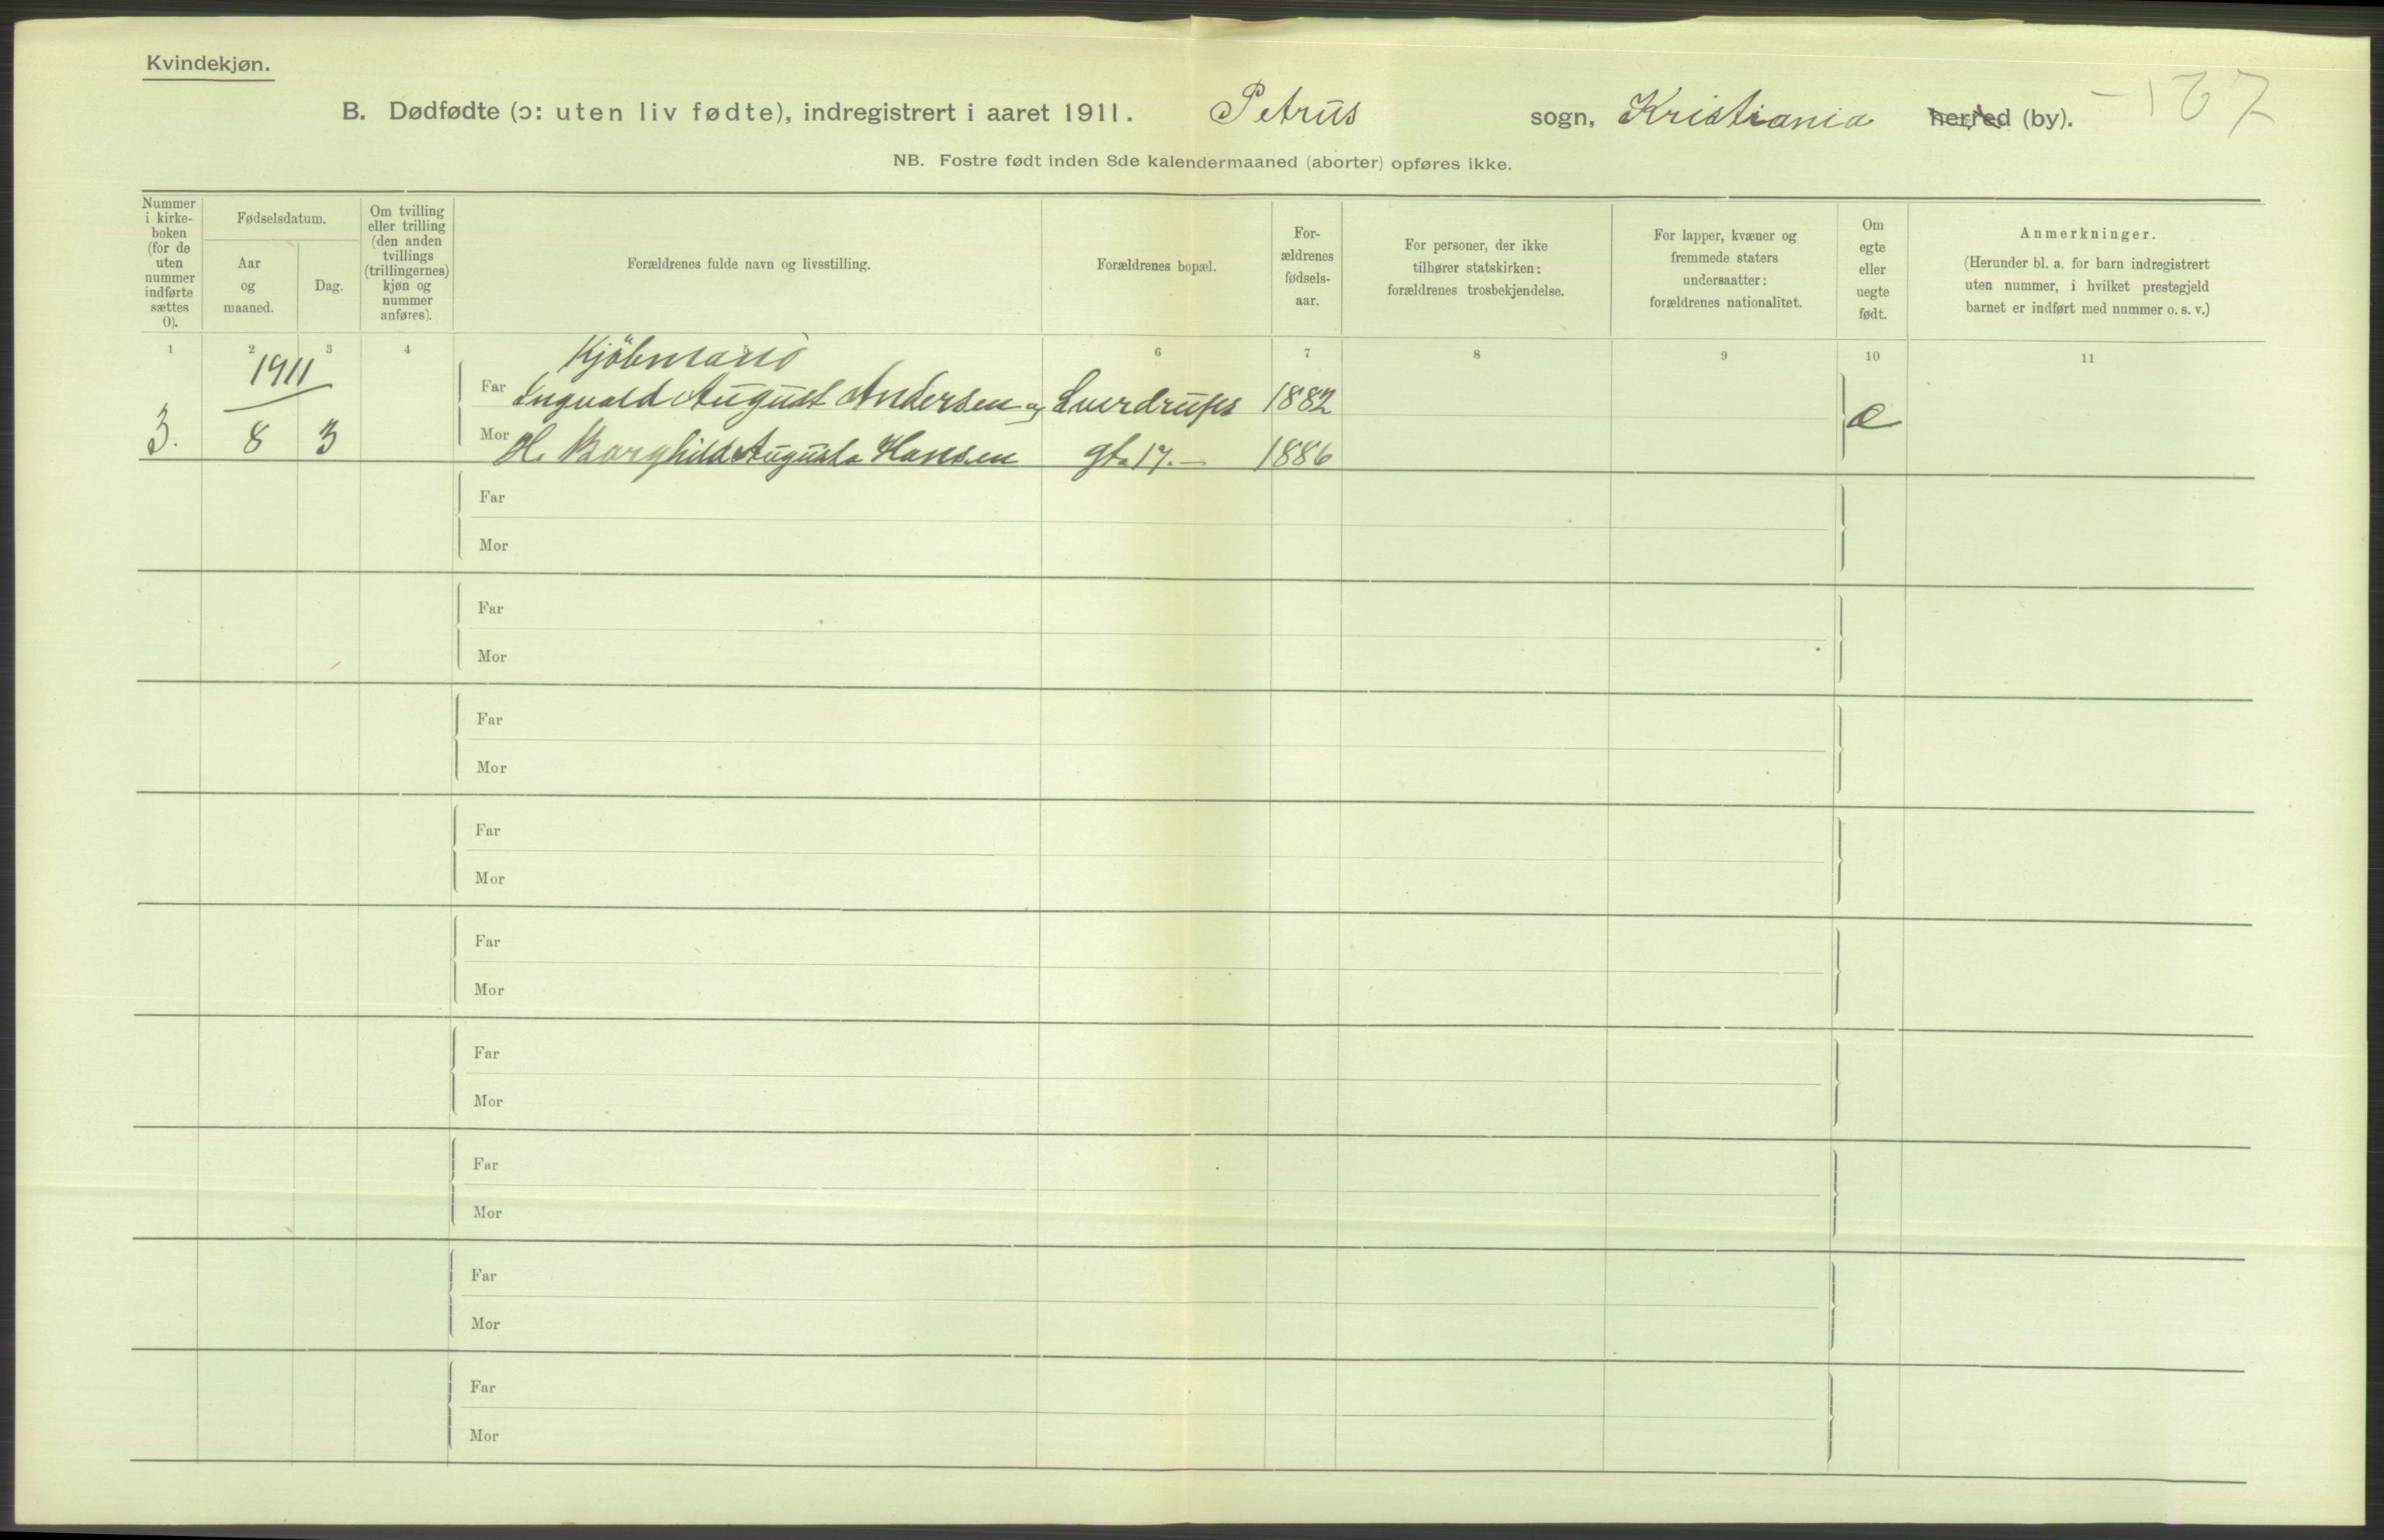 Kvindekjøn.
B. Dødfødte (ɔ: uten liv fødte), indregistrert i aaret 1911. Petrus sogn, Kristiania herred (by). - 167
NB. Fostre født inden 8de kalendermaaned (aborter) opføres ikke.
Nummer i kirke-boken (for de uten nummer indførte sættes 0).
Fødselsdatum.
Aar og maaned.
Dag.
Om tvilling eller trilling (den anden tvillings (trillingernes) kjøn og nummer anføres).
Forældrenes fulde navn og livsstilling.
Forældrenes bopæl.
For-ældrenes fødsels-aar.
For personer, der ikke tilhører statskirken: forældrenes trosbekjendelse.
For lapper, kvæner og fremmede staters undersaatter: forældrenes nationalitet.
Om egte eller uegte født.
Anmerkninger.
(Herunder bl. a. for barn indregistrert uten nummer, i hvilket prestegjeld barnet er indført med nummer o. s. v.)
1 2 3 4 5 6 7 8 9 10 11
1911 Kjøbmand
Far Ingvald August Andersen og Sverdrups 1882
3. 8 3 Mor H. Borghild Augusta Hansen gt. 17. — 1886 e
Far
Mor
Far
Mor
Far
Mor
Far
Mor
Far
Mor
Far
Mor
Far
Mor
Far
Mor
Far
Mor